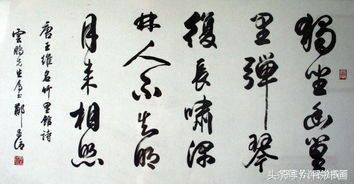 獨坐幽篁
里彈琴
復長嘯深
林人不知明
月来相照
唐王維名竹里館詩
雲鵬先生 鄭